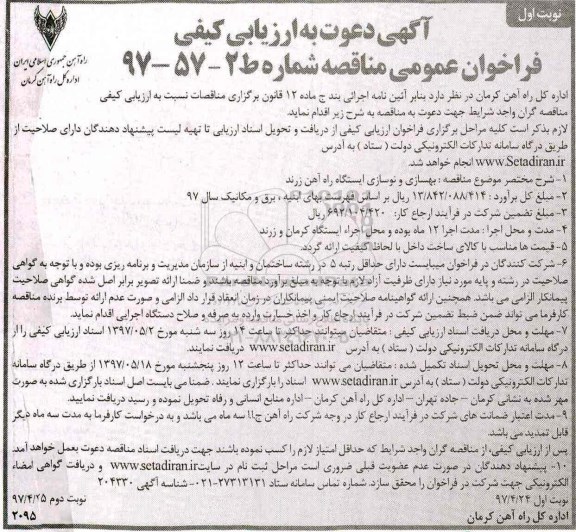 نوبت اول
راه آهن جمهوری اسلامی ایران
اداره کل راه آهن کرمان
آگهی دعوت به ارزیابی کیفی
فراخوان عمومی مناقصه شماره ط۲-۵۷-۹۷
اداره کل راه آهن کرمان در نظر دارد بنابر آئین نامه اجرائی بند ج ماده ۱۲ قانون برگزاری مناقصات نسبت به ارزیابی کیفی
مناقصه گران واجد شرایط جهت دعوت به مناقصه به شرح زیر اقدام نماید.
لازم بذکر است کلیه مراحل برگزاری فراخوان ارزیابی کیفی از دریافت و تحویل اسناد ارزیابی تا تهیه لیست پیشنهاد دهندگان دارای صلاحیت از
طریق درگاه سامانه تدارکات الکترونیکی دولت ( ستاد ) به آدرس
www.Setadiran.ir انجام خواهد شد.
۱- شرح مختصر موضوع مناقصه : بهسازی و نوسازی ایستگاه راه آهن زرند
۲- مبلغ کل برآورد : ۱۳/۸۴۲/۰۸۸/۴۱۴ ریال بر اساس فهرست بهای ابنیه ، برق و مکانیک سال ۹۷
۳- مبلغ تضمین شرکت در فرآیند ارجاع کار: ۶۹۲/۱۰۴/۴۲۰ ریال
۴- مدت و محل اجرا : مدت اجرا ۱۲ ماه بوده و محل اجراء ایستگاه کرمان و زرند
۵- قیمت ها مناسب با کالای ساخت داخل با لحاظ کیفیت ارائه گردد.
۶- شرکت کنندگان در فراخوان میبایست دارای حداقل رتبه ۵ در رشته ساختمان و ابنیه از سازمان مدیریت و برنامه ریزی بوده و با توجه به گواهی
صلاحیت در رشته و پایه مورد نیاز دارای ظرفیت آزاد لازم با توجه به مبلغ برآورد مناقصه باشند . ضمنا ارائه تصویر برابر اصل شده گواهی صلاحیت
پیمانکار الزامی می باشد. همچنین ارائه گواهینامه صلاحیت ایمنی پیمانکاران در زمان انعقاد قرار داد الزامی و صورت عدم ارائه توسط برنده مناقصه
کارفرما می تواند ضمن ضبط تضمین شرکت در فرآیند ارجاع کار و اخذ خسارت وارده به صرفه و صلاح دستگاه اجرایی اقدام نماید.
۷- مهلت و محل دریافت اسناد ارزیابی کیفی : متقاضیان میتوانند حداکثر تا ساعت ۱۴ روز سه شنبه مورخ ۱۳۹۷/۰۵/۲ اسناد ارزیابی کیفی را از
درگاه سامانه تدارکات الکترونیکی دولت ( ستاد ) به آدرس www.setadiran.ir دریافت نمایند.
۸- مهلت و محل تحویل اسناد تکمیل شده : متقاضیان می توانند حداکثر تا ساعت ۱۲ روز پنجشنبه مورخ ۱۳۹۷/۰۵/۱۸ از طریق درگاه سامانه
تدارکات الکترونیکی دولت ( ستاد ) به آدرس www.setadiran.ir اسناد را بارگزاری نمایند . ضمنا می بایست اصل اسناد بارگزاری شده به صورت
مهر شده به نشانی کرمان – جاده تهران – اداره کل راه آهن کرمان – اداره منابع انسانی و رفاه تحویل نموده و رسید دریافت نمایید.
۹- مدت اعتبار ضمانت های شرکت در فرآیند ارجاع کار در وجه شرکت راه آهن ج.ا.ا سه ماه می باشد و به درخواست کارفرما به مدت سه ماه دیگر
قابل تمدید می باشد.
پس از ارزیابی کیفی، از مناقصه گران واجد شرایط که حداقل امتیاز لازم را کسب نموده باشند جهت دریافت اسناد مناقصه دعوت بعمل خواهد آمد.
۱۰- پیشنهاد دهندگان در صورت عدم عضویت قبلی ضروری است مراحل ثبت نام در سایت www.setadiran.ir و دریافت گواهی امضاء
الکترونیکی جهت شرکت در فراخوان را محقق سازد. شماره تماس سامانه ستاد ۲۷۳۱۳۱۳۱-۰۲۱ شناسه آگهی ۲۰۴۳۳۰
نوبت اول ۹۷/۴/۲۴
نوبت دوم ۹۷/۴/۲۵
اداره کل راه آهن کرمان
۲۰۹۵